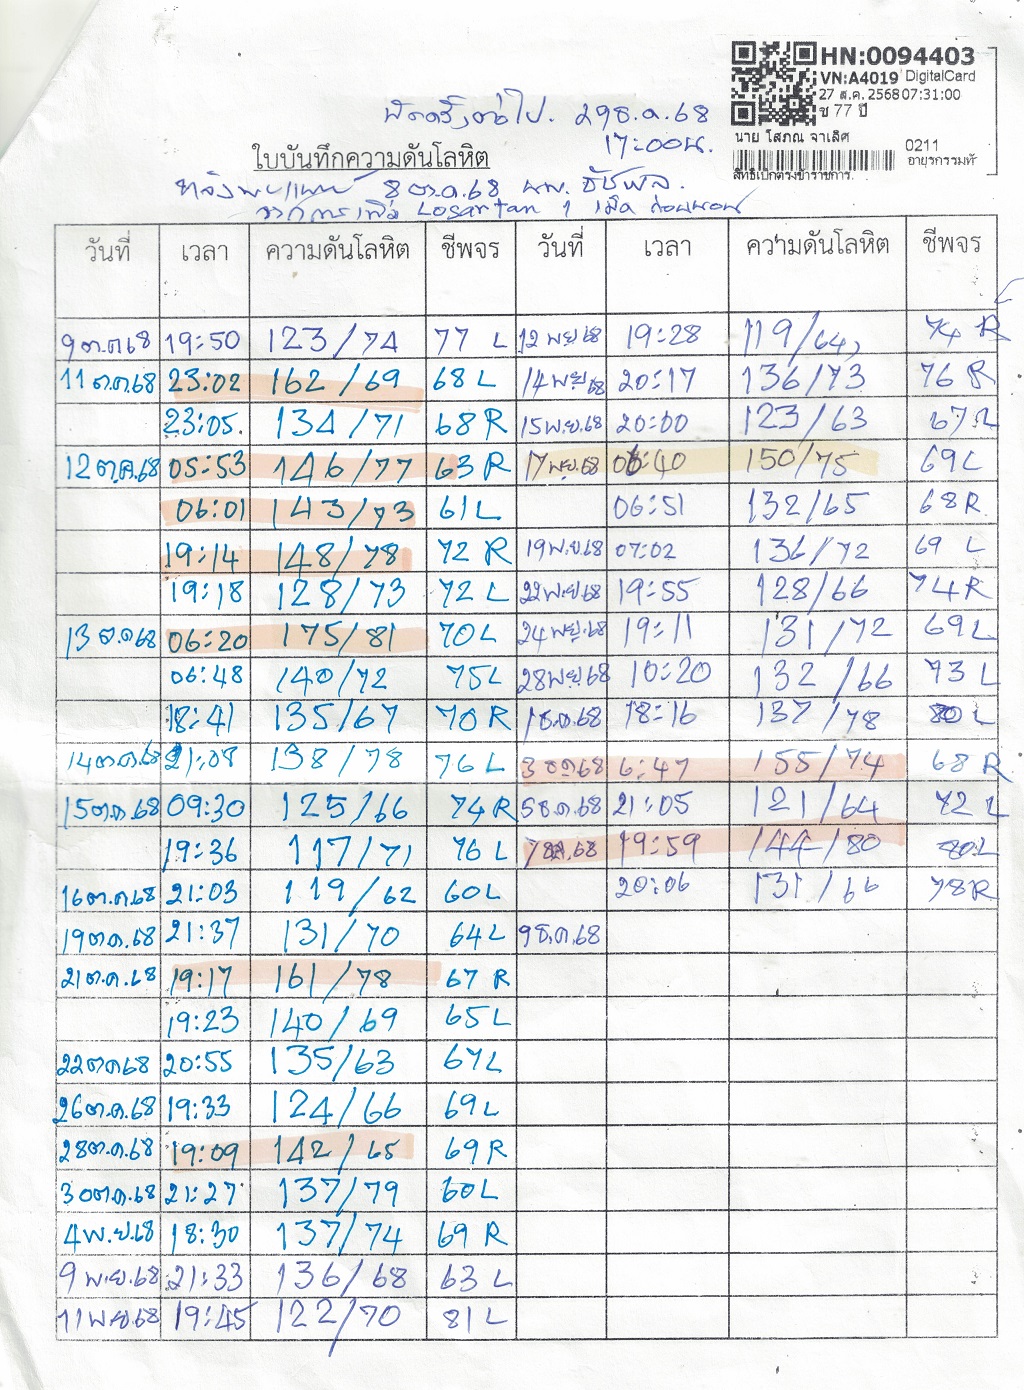 HN:0094403
VN:A4019 DigitalCard
27 ส.ค. 2568 07:31:00
ช 77 ปี
นาย โสภณ จาเลิศ
0211
อายุรกรรมทั
สิทธิเบิกตรงข้าราชการ.
นัดครั้งต่อไป. 29ธ.ค.68
17:00น.
ใบบันทึกความดันโลหิต
หลังพบแพทย์ 8 ต.ค.68 นพ. ธัชพล.
Losartan 1 เม็ด ก่อนนอน
วันที่ เวลา ความดันโลหิต ชีพจร วันที่ เวลา ความดันโลหิต ชีพจร
9ต.ค68 19:50 123/74 77 L 12 พย 68 19:28 119/64, 74 R
11 ต.ค68 23:02 162/69 68 L 14พย 68 20:17 136/73 76 R
23:05. 134/71 68 R 15พ.ย.68 20:00 123/63 67 L
12ต.ค.68 05:53 146/77 63 R 17พย.68 06:40 150/75 69 L
06:01 143/73 61 L 06:51 132/65 68 R
19:14 148/78 72 R 19พ.ย68 07:02 136/72 69 L
19:18 128/73 72 L 22พ.ย68 19:55 128/66 74 R
13 ต.ค68 06:20 175/81 70 L 24พย.68 19:11 131/72 69 L
06:48 140/72 75 L 28พย.68 10:20 132/66 73 L
18:41 135/67 70 R 1ธ.ค.68 18:16 137/78 80 L
14ต.ค.68 21:08 138/78 76 L 3 ธค68 6:47 155/74 68 R
15ต.ค.68 09:30 125/66 74 R 5ธ.ค.68 21:05 121/64 72 L
19:36 117/71 76 L 7ธค.68 19:59 144/80 80 L
16ต.ค.68 21:03 119/62 60 L 20:06 131/66 78 R
19ต.ค.68 21:37 131/70 64 L 9ธ.ค.68
21ต.ค.68 19:17 161/78 67 R
19:23 140/69 65 L
22ต.ค68 20:55 135/63 67 L
26ต.ค.68 19:33 124/66 69 L
28ต.ค.68 19:09 142/65 69 R
30ต.ค.68 21:27 137/79 60 L
4พ.ย.68 18:30 137/74 69 R
9 พ.ย.68 21:33 136/68 63 L
11พ.ย.68 19:45 122/70 81 L